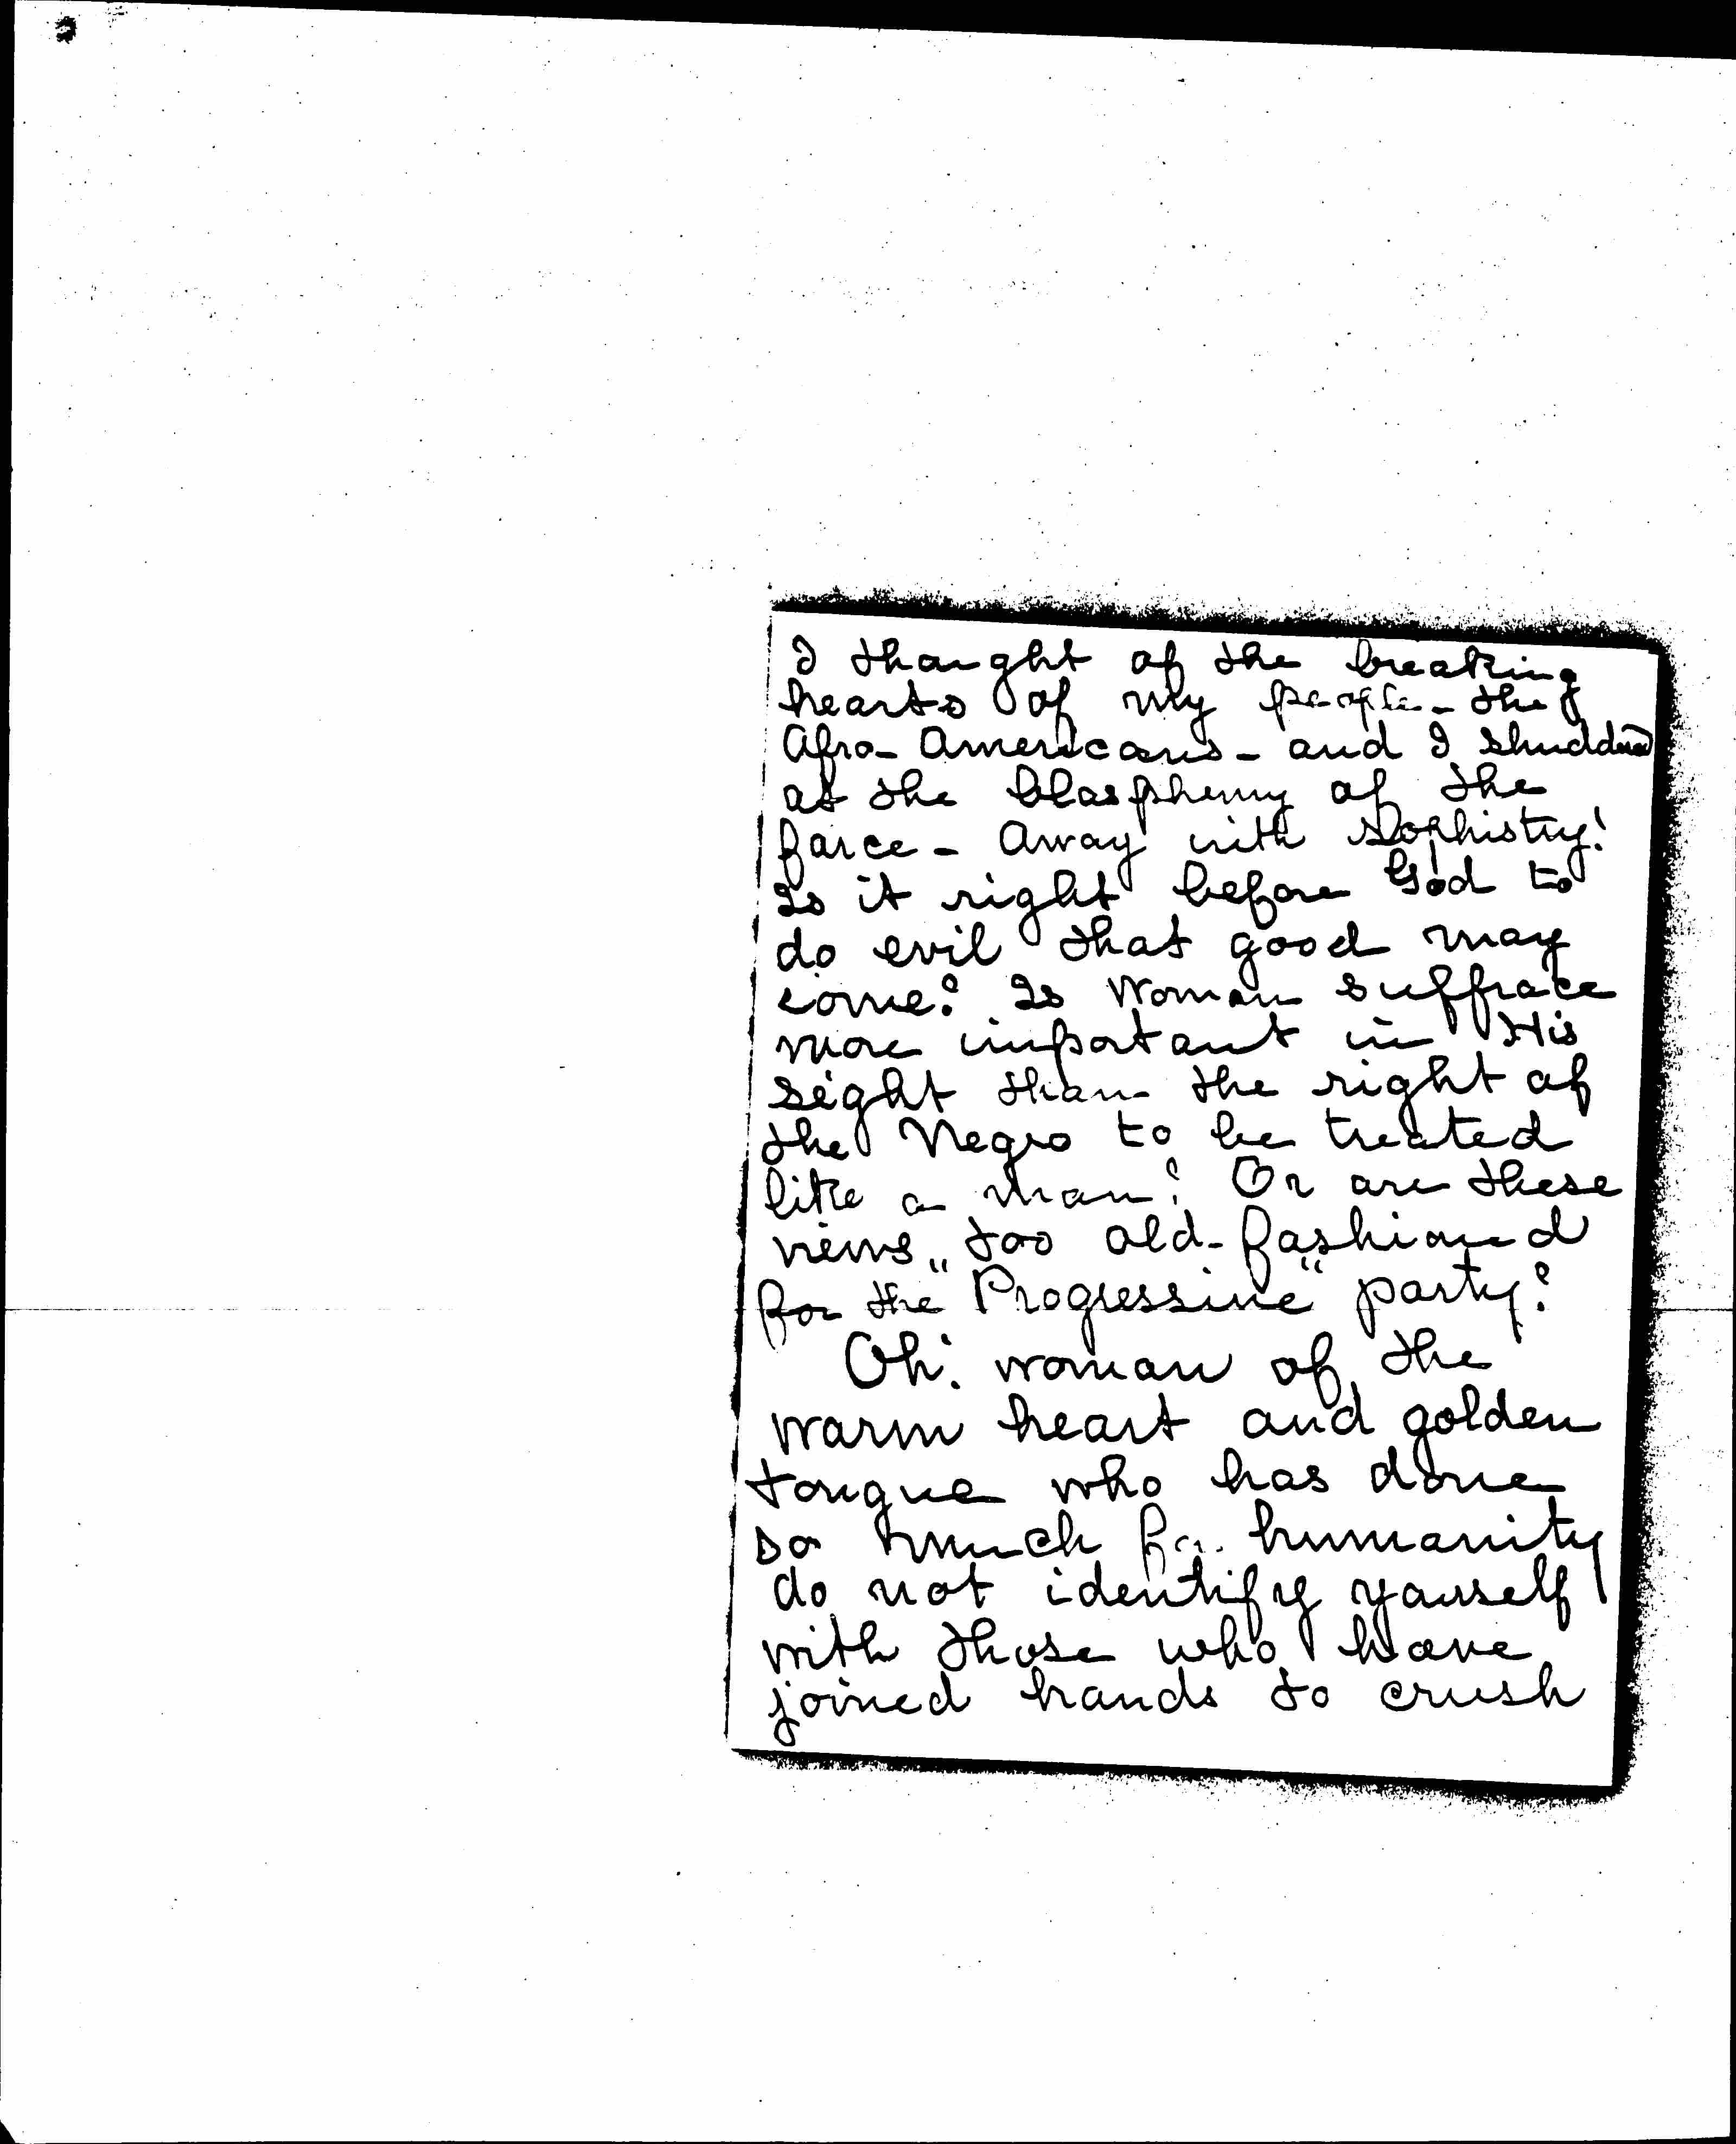 I thought of the breaking
hearts of my people - the
Afro-Americans - and I shuddered
at the blasphemy of the
farce - Away with Sophistry!
Is it right before God to
do evil that good may
come? Is Woman suffrace
more important in His
sight than the right of
the Negro to be treated
like a man? Or are these
views too old-fashioned
for the "Progressive" party?
Oh! woman of the
warm heart and golden
tongue who has done
so much for humanity
do not identify yourself
with those who have
joined hands to crush